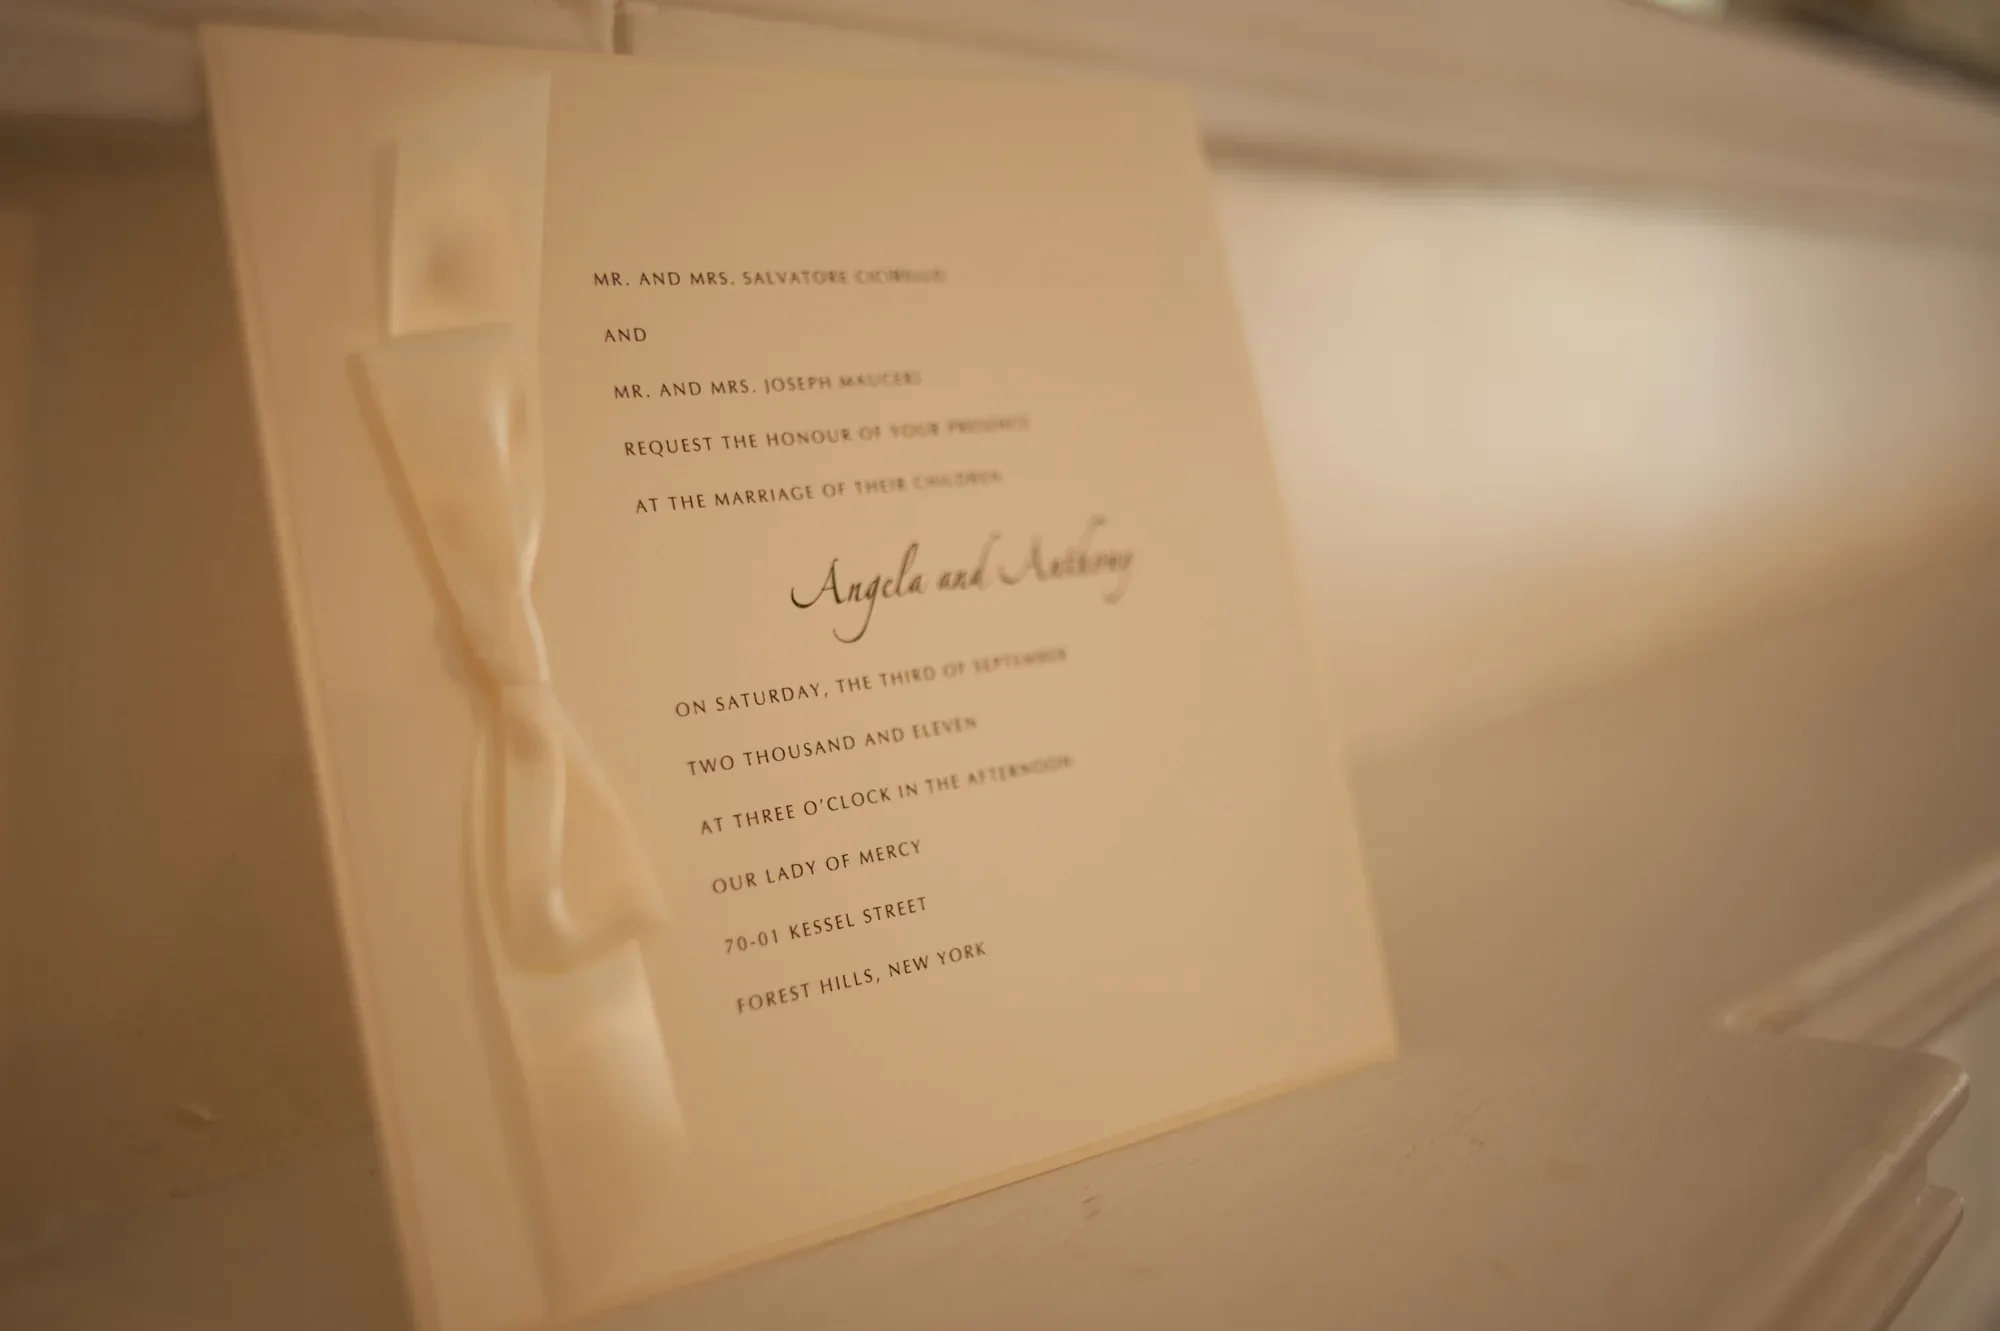 MR. AND MRS. SALVATORE CICIRELLO
AND
MR. AND MRS. JOSEPH MAUCERI
REQUEST THE HONOUR OF YOUR PRESENCE
AT THE MARRIAGE OF THEIR CHILDREN
Angela and Anthony
ON SATURDAY, THE THIRD OF SEPTEMBER
TWO THOUSAND AND ELEVEN
AT THREE O'CLOCK IN THE AFTERNOON
OUR LADY OF MERCY
70-01 KESSEL STREET
FOREST HILLS, NEW YORK